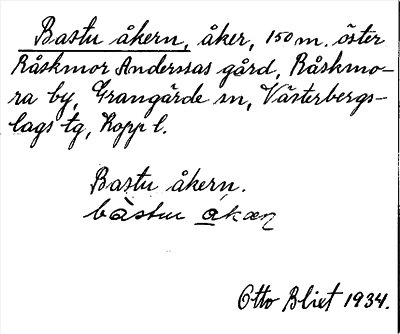 Bastu åkern, åker, 150 m. öster
Råskmor Anderssas gård, Råskmo-
ra by, Grangärde sn, Västerbergs-
lags tg, Kopp l.
Bastu åkern.
Otto Blixt 1934.